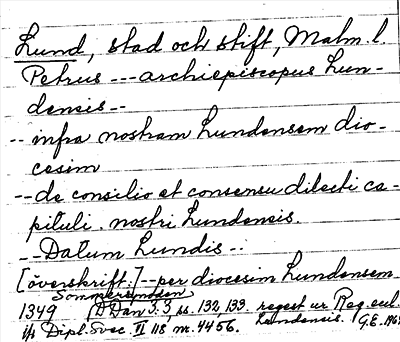 Lund, stad och stift, Malm. l.
Petrus --- archiepiscopus Lun-
densis --
-- infra nostram Lundensem dio-
cesim
-- de consilio et consensu dilecti ca-
pituli nostri Lundensis.
-- Datum Lundis -:
[överskrift:] -- per diocesim Lundensem
Sommersindsen
1349 DDan 3:3 ss. 132 133. regest ur Reg. eccl.
1/5 Dipl. Svec. VI 118 nr. 4456. Lundensis. G.E. 196